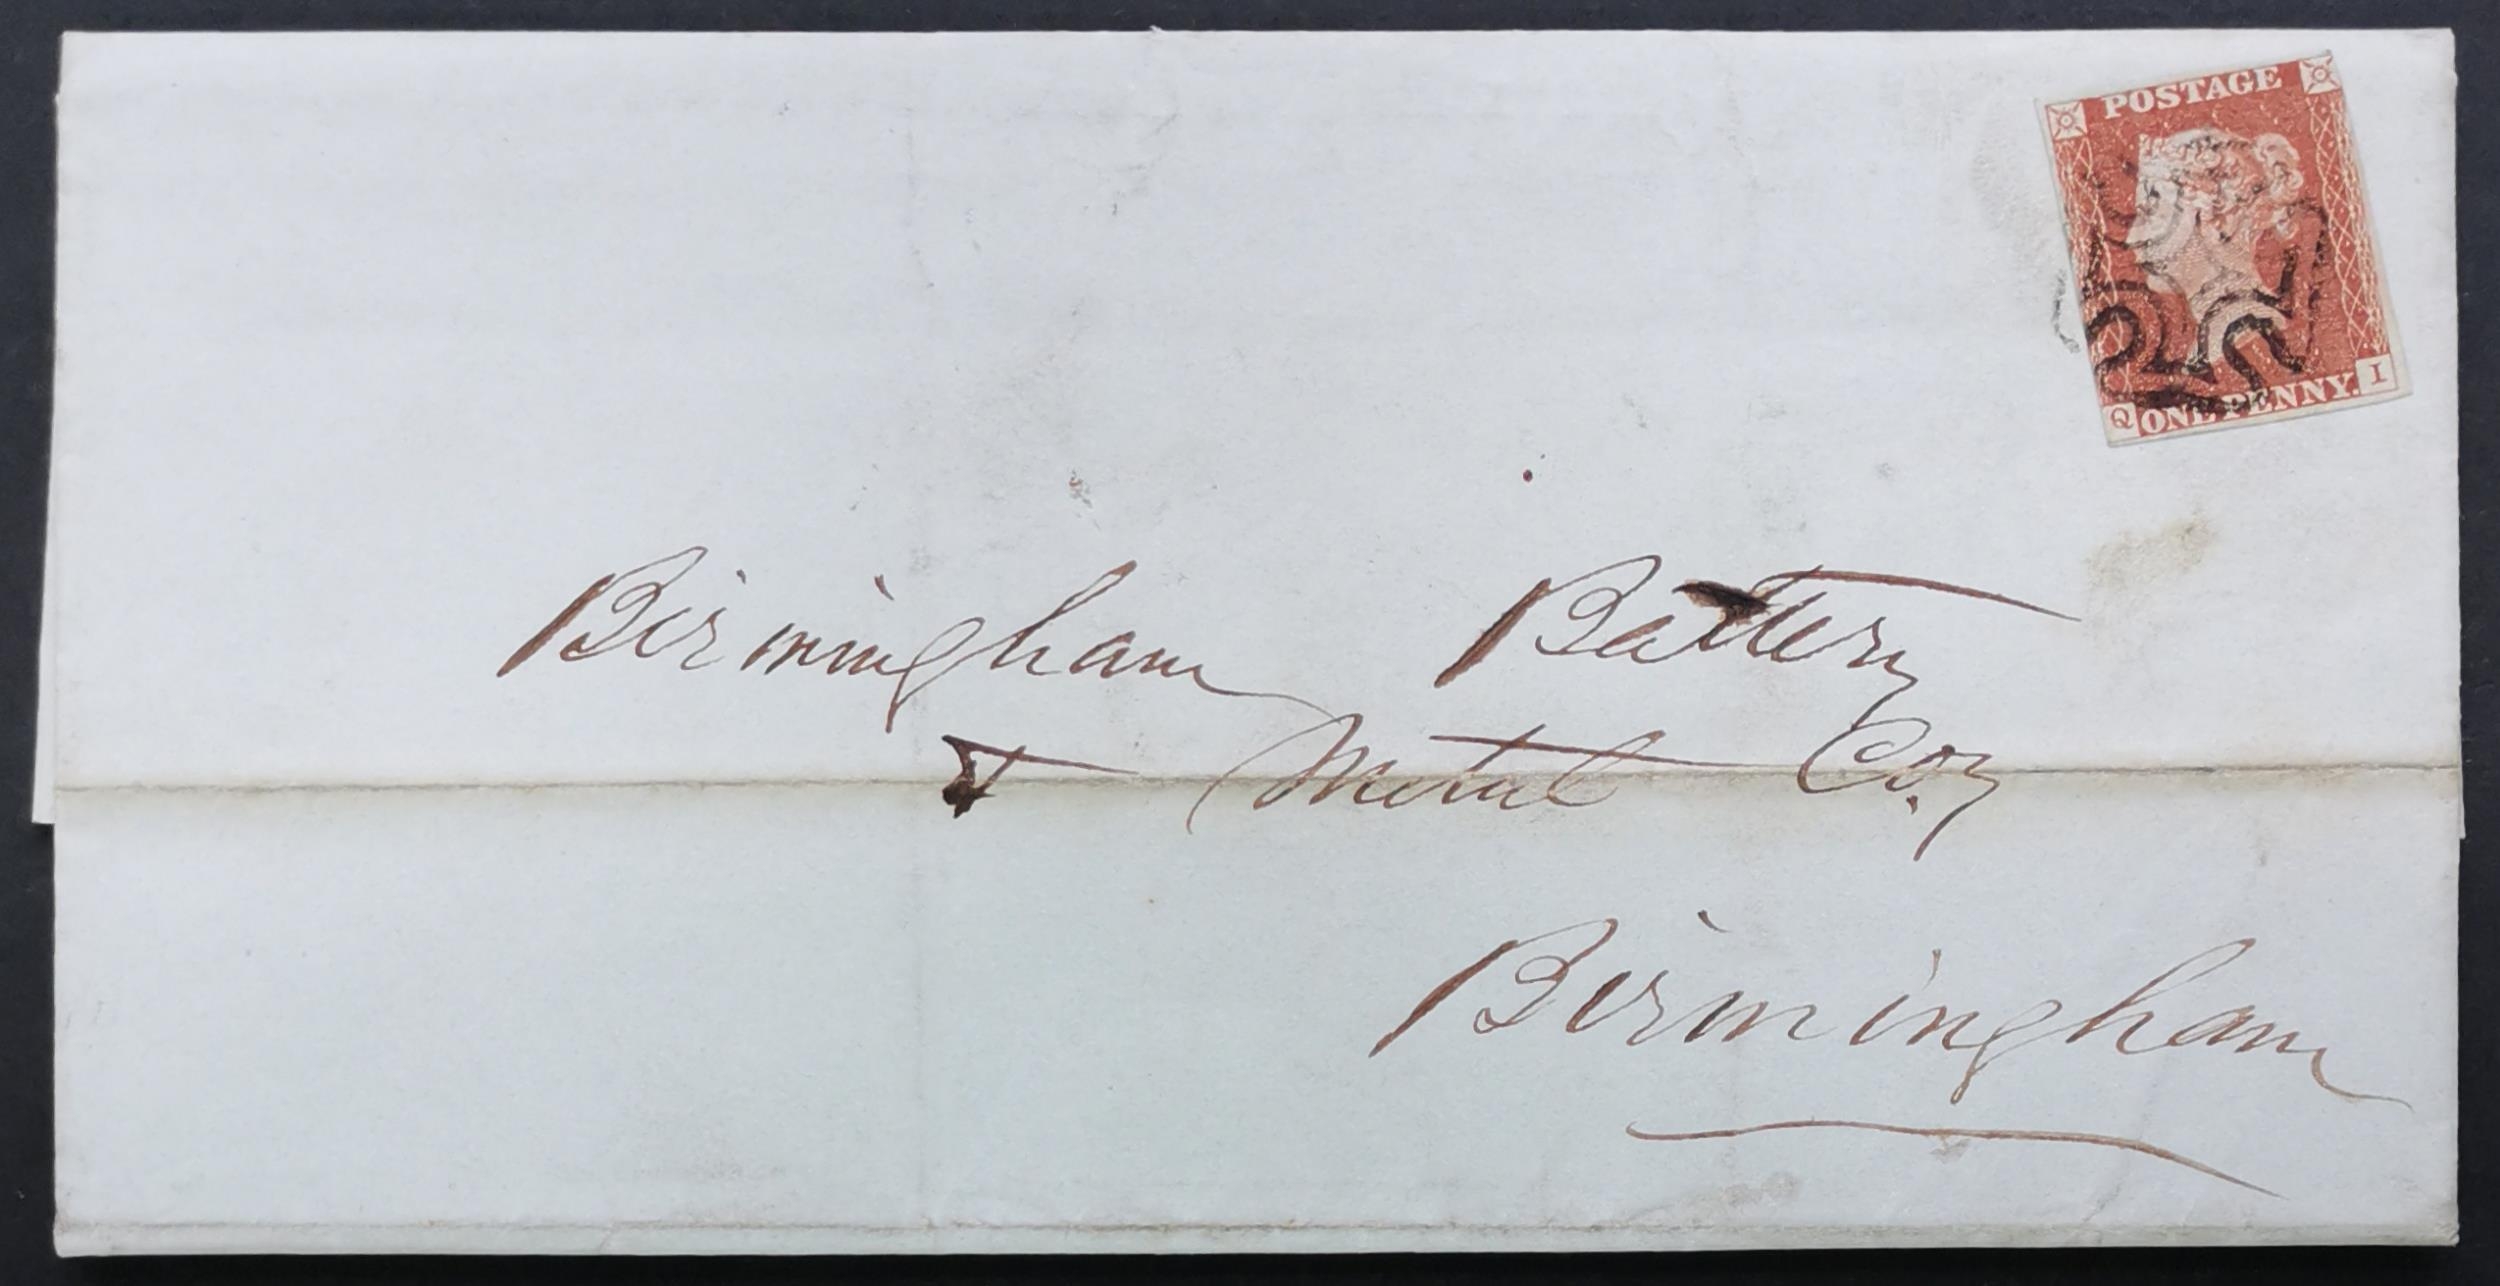 POSTAGE
Q ONE PENNY. I
Birmingham Battery
& Metal Coy
Birmingham